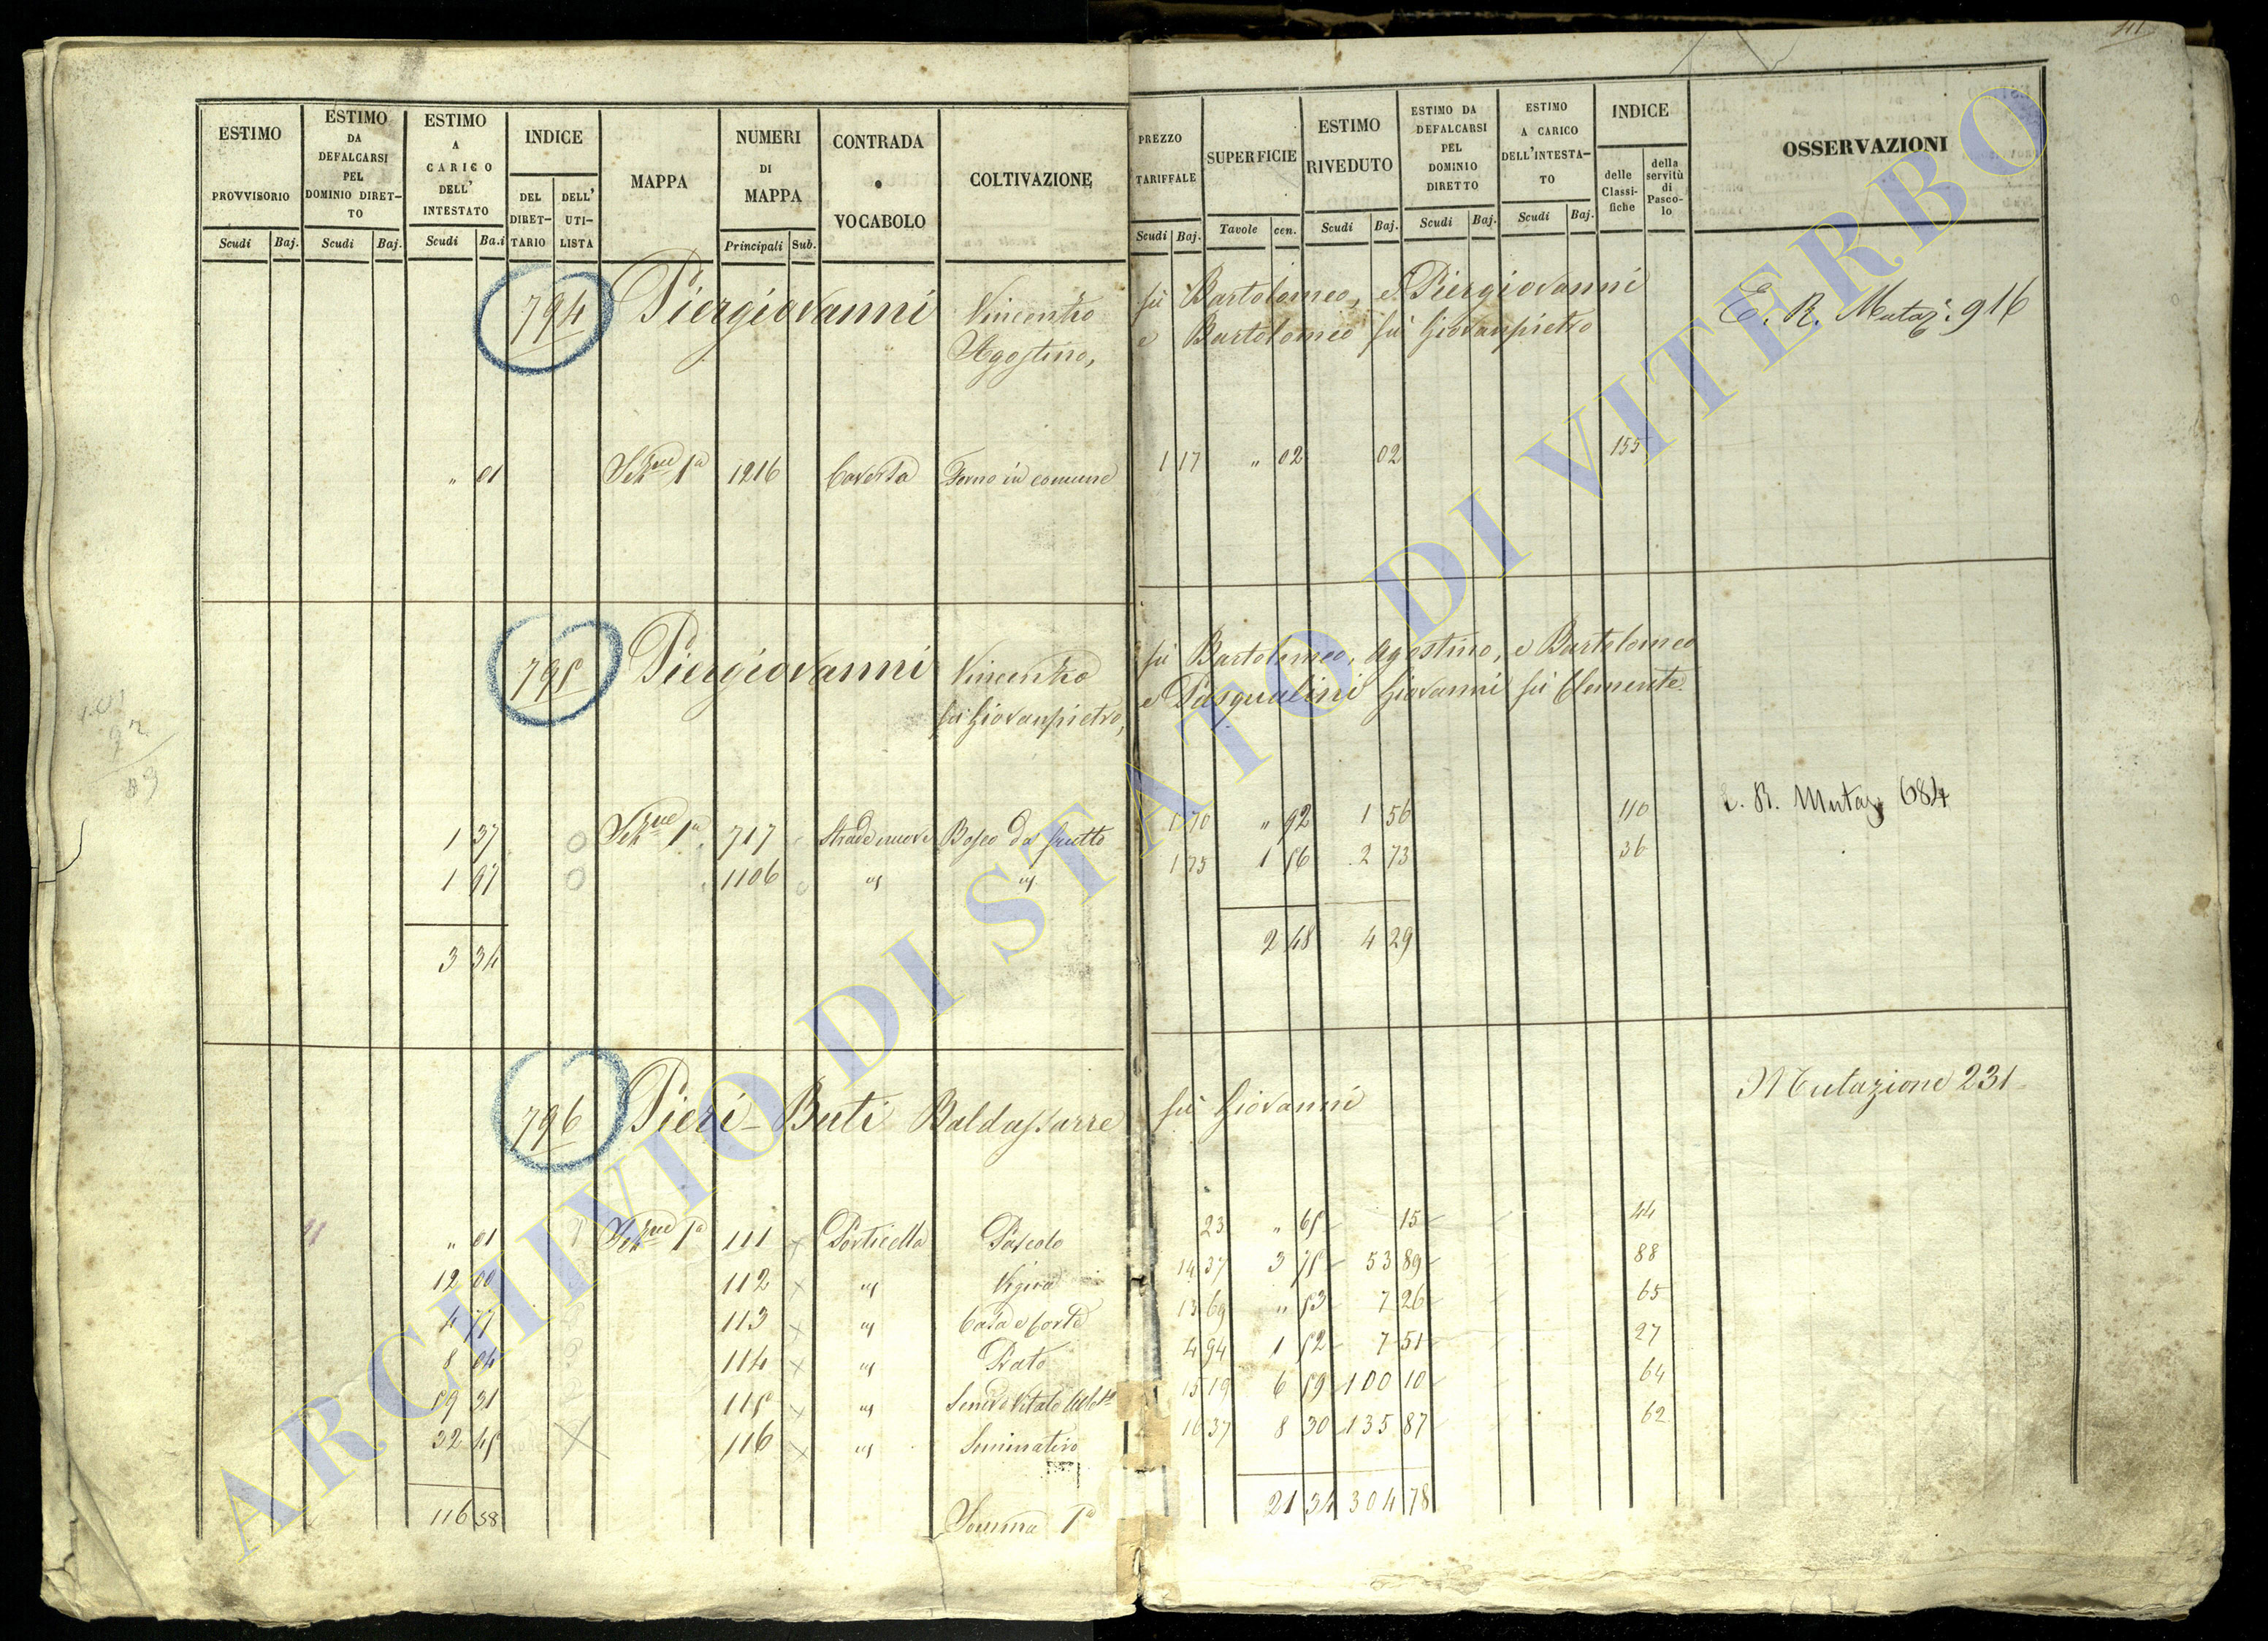 ESTIMO PROVVISORIO
Scudi Baj.
ESTIMO DA DEFALCARSI PEL DOMINIO DIRET-TO
Scudi Baj.
ESTIMO A CARICO DELL' INTESTATO
Scudi Ba.i
INDICE
DEL DIRET-TARIO
DELL' UTI-LISTA
MAPPA
NUMERI DI MAPPA
Principali Sub.
CONTRADA o VOCABOLO
COLTIVAZIONE
PREZZO TARIFFALE
Scudi Baj.
SUPERFICIE
Tavole cen.
ESTIMO RIVEDUTO
Scudi Baj.
ESTIMO DA DEFALCARSI PEL DOMINIO DIRETTO
Scudi Baj.
ESTIMO A CARICO DELL'INTESTA-TO
Scudi Baj.
INDICE
delle Classi-fiche
della servitù di Pasco-lo
OSSERVAZIONI
794 Piergiovanni Vincenzo fù Bartolomeo, e Piergiovanni E. R. Mutaz. 916
Agostino, e Bartolomeo fù Giovanpietro
" 01 Sezne 1a 1216 Caverta Forno in comune 1 17 " 02 02 155
795 Piergiovanni Vincenzo fù Bartolomeo, Agostino, e Bartolomeo
fù Giovanpietro, e Pasqualini Giovanni fù Clemente
E. R. Mutaz. 684
1 37 Sezne 1a 717 Strade nuove Bosco da frutto 1 70 " 92 1 56 110
1 97 1106 " " 1 75 1 56 2 73 36
3 34 2 48 4 29
796 Pieri-Buti Baldassarre fù Giovanni Mutazione 231
" 01 Sezne 1a 111 Porticella Pascolo 23 " 65 15 44
12 00 112 " Vigna 14 37 3 75 53 89 88
4 77 113 " Casa e Corte 13 69 " 53 7 26 65
8 04 114 " Prato 4 94 1 52 7 51 27
59 31 115 " 15 19 6 59 100 10 64
32 45 116 " Seminativo 16 37 8 30 135 87 62
116 58 Somma 1a 21 34 304 78
ARCHIVIO DI STATO DI VITERBO